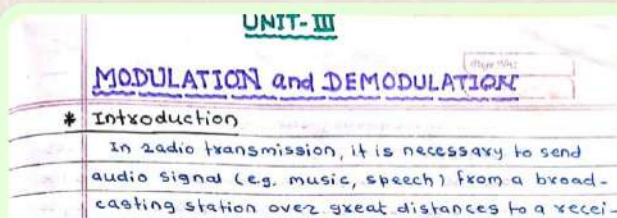 UNIT-III
MODULATION and DEMODULATION
* Introduction
In radio transmission, it is necessary to send
audio signal (e.g. music, speech) from a broad-
casting station over great distances to a recei-